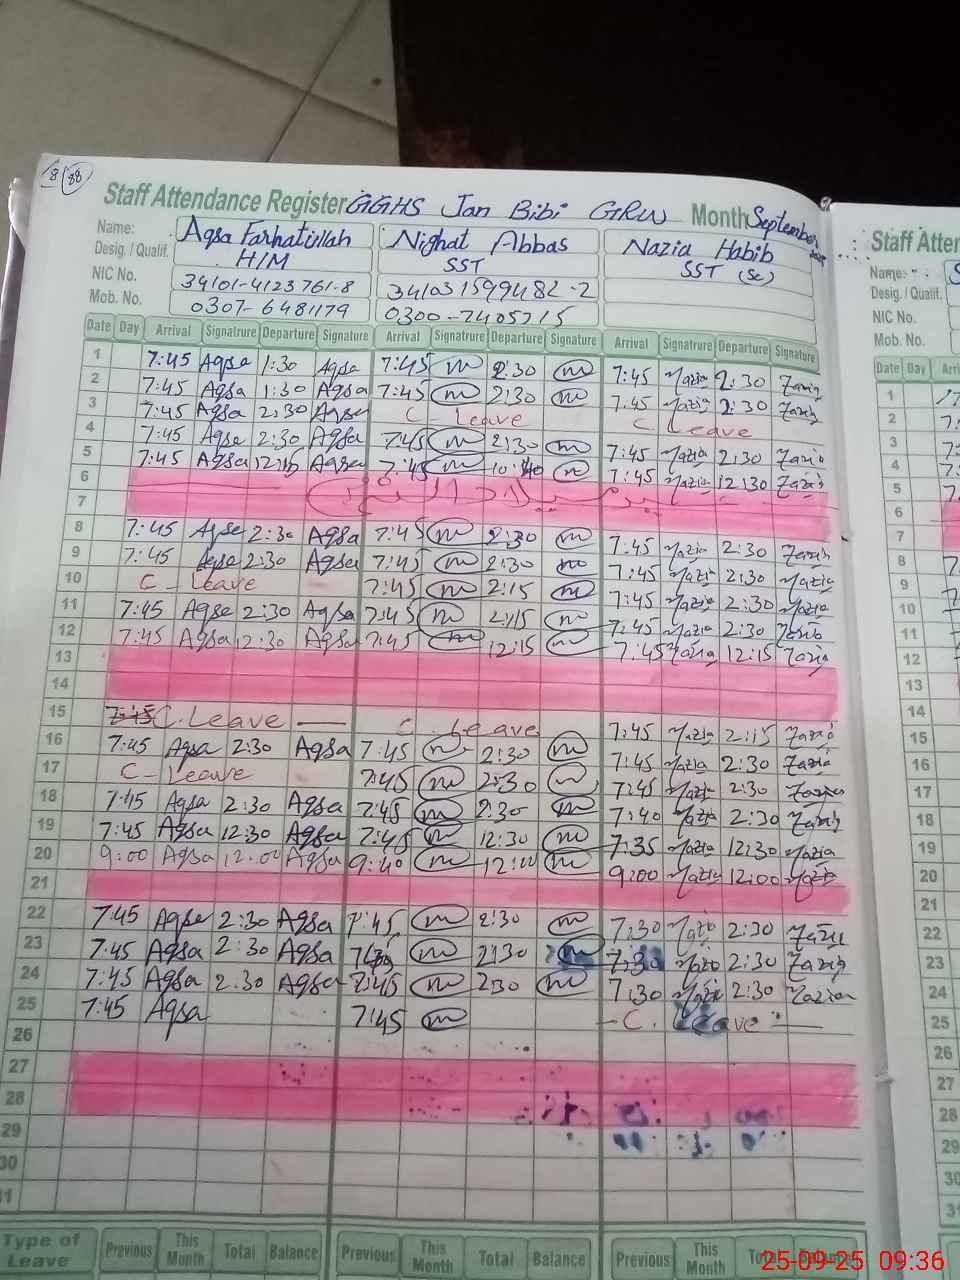 8 88
Staff Attendance Register GGHS Jan Bibi GRW Month September
Name: Aqsa Farhatullah Nighat Abbas Nazia Habib
Desig. / Qualif. H/M SST SST (Sc)
NIC No. 34101-4123761-8 341031599482-2
Mob. No. 0307-6481179 0300-7405215
Date Day Arrival Signatrure Departure Signature Arrival Signatrure Departure Signature Arrival Signatrure Departure Signature
1 7:45 Aqsa 1:30 Aqsa 7:45 2:30 7:45 Nazia 2:30 Nazia
2 7:45 Aqsa 1:30 Aqsa 7:45 2:30 7:45 Nazia 2:30 Nazia
3 7:45 Aqsa 2:30 Aqsa C - Leave C. Leave
4 7:45 Aqsa 2:30 Aqsa 7:45 2:30 7:45 Nazia 2:30 Nazia
5 7:45 Aqsa 12:15 Aqsa 7:45 10:40 7:45 Nazia 12:30 Nazia
6
7
8 7:45 Aqsa 2:30 Aqsa 7:45 2:30 7:45 Nazia 2:30 Nazia
9 7:45 Aqsa 2:30 Aqsa 7:45 2:30 7:45 Nazia 2:30 Nazia
10 C - Leave 7:45 2:15 7:45 Nazia 2:30 Nazia
11 7:45 Aqsa 2:30 Aqsa 7:45 2:15 7:45 Nazia 2:30 Nazia
12 7:45 Aqsa 12:30 Aqsa 7:45 12:15 7:45 Nazia 12:15 Nazia
13
14
15 7:45 C. Leave C. Leave 7:45 Nazia 2:15 Nazia
16 7:45 Aqsa 2:30 Aqsa 7:45 2:30 7:45 Nazia 2:30 Nazia
17 C - Leave 7:45 2:30 7:45 Nazia 2:30 Nazia
18 7:45 Aqsa 2:30 Aqsa 7:45 2:30 7:40 Nazia 2:30 Nazia
19 7:45 Aqsa 12:30 Aqsa 7:45 12:30 7:35 Nazia 12:30 Nazia
20 9:00 Aqsa 12:00 Aqsa 9:40 12:00 9:00 Nazia 12:00 Nazia
21
22 7:45 Aqsa 2:30 Aqsa 7:45 2:30 7:30 Nazia 2:30 Nazia
23 7:45 Aqsa 2:30 Aqsa 2:30 7:30 Nazia 2:30 Nazia
24 7:45 Aqsa 2:30 Aqsa 7:45 2:30 7:30 Nazia 2:30 Nazia
25 7:45 Aqsa 7:45 C. Leave
26
27
28
29
30
Type of Leave Previous This Month Total Balance Previous This Month Total Balance Previous This Month
25-09-25 09:36
Name:
Desig. / Qualif.
NIC No.
Mob. No.
Date Day
1
2
3
4
5
6
7
8
9
10
11
12
13
14
15
16
17
18
19
20
21
22
23
24
25
26
27
28
29